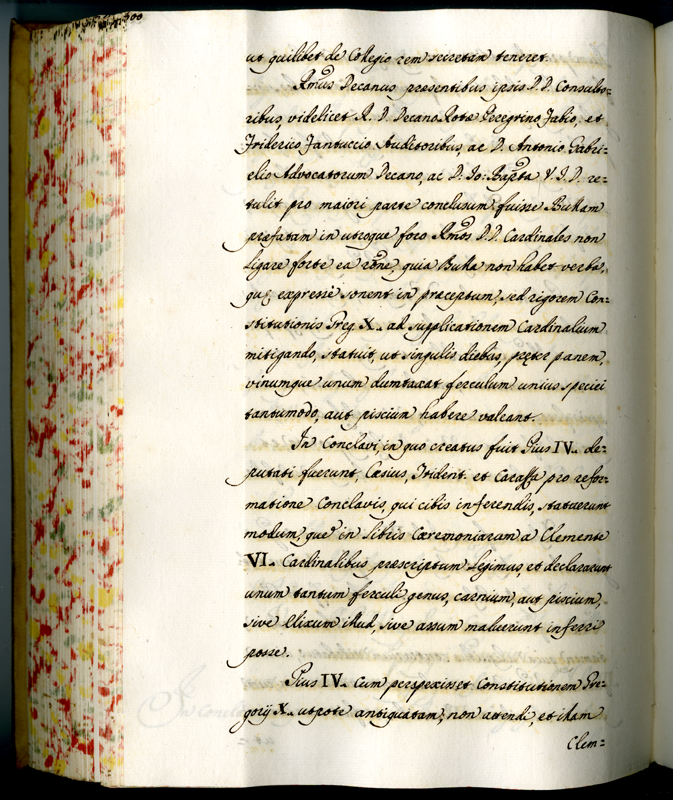 300
ut quilibet de Collegio rem secretam teneret.
Rmus Decanus præsentibus ipsis D.D. Consulto=
ribus, videlicet R. D. Decano Rotæ Peregrino Fabio, et
Friderico Fantuccio Auditoribus, ac D. Antonio Gabri=
elio Advocatorum Decano, ac D. Jo: Bapta V.J.D. re=
tulit pro maiori parte conclusum fuisse Bullam
præfatam in utroque foro Rmos D.D. Cardinales non
ligare forte ea rōne, quia Bulla non habet verba,
quę expressè sonent in præceptum, sed rigorem Con=
stitutionis Greg. X. ad supplicationem Cardinalium
mitigando, statuit, ut singulis diebus, pręter panem,
vinumque unum dumtaxat ferculum unius speciei
tantumodo, aut piscium habere valeant.
In Conclavi, in quo creatus fuit Pius IV. de=
putati fuerunt, Cæsius, et Caraffa pro refor=
matione Conclavis, qui cibis inferendis, statuerunt
modum, quem in libris Cæremoniarum a Clemente
VI. Cardinalibus præscriptum legimus, et declararunt
unum tantum ferculi genus, carnium, aut piscium,
sive elixum illud, sive assum maluerunt inferri
posse.
Pius IV. cum perspexisset Constitutionem Gre=
gorij X. utpote antiquatam, non attendi, et illam
Clem=